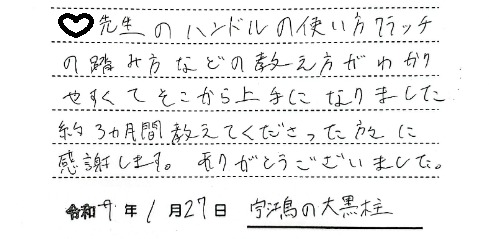 ♡先生のハンドルの使い方クラッチ
の踏み方などの教え方がわかり
やすくてそこから上手になりました
約3ヵ月間教えてくださった方に
感謝します。ありがとうございました。
令和7年1月27日 宇鴻の大黒柱